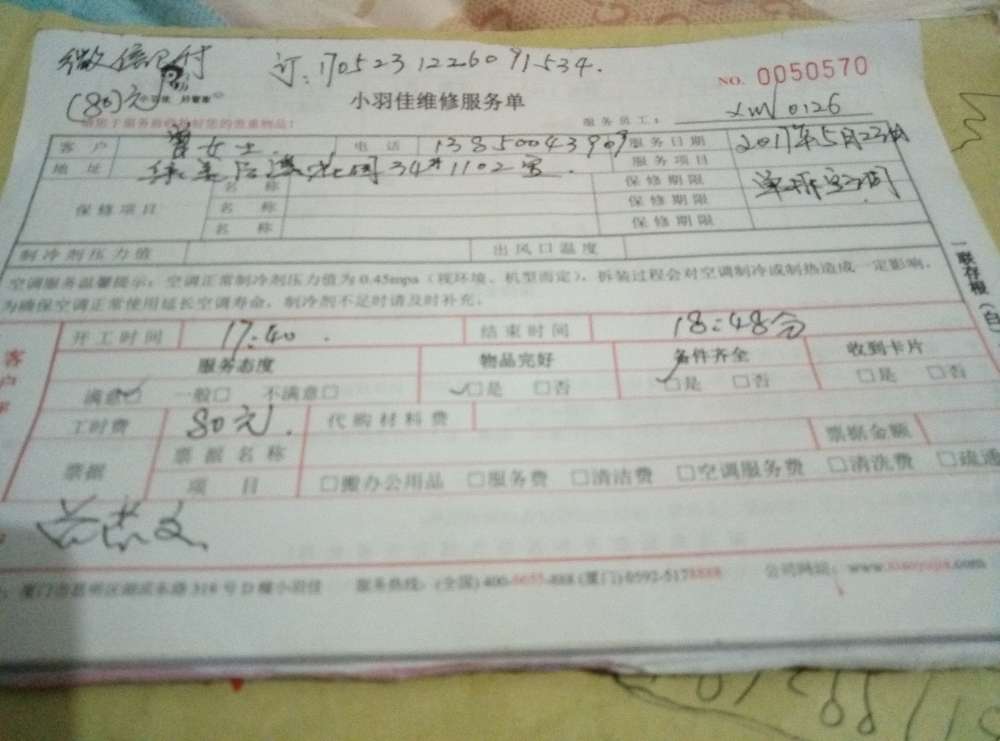 微信已付 订:1705231226091534.
(80)元 NO. 0050570
小羽佳 好管家
小羽佳维修服务单
服务员工: XM 0126
客户 曾女士 电话 13850043909 服务日期 2017年5月23日
地址 34# 1102室 服务项目
保修项目 名称 保修期限
名称 保修期限
名称 保修期限
制冷剂压力值 出风口温度
空调服务温馨提示:空调正常制冷剂压力值为0.45mpa(视环境、机型而定),拆装过程会对空调制冷或制热造成一定影响,
为确保空调正常使用延长空调寿命,制冷剂不足时请及时补充。
一联存根(白
开工时间 17:40. 结束时间 18:48分
客户
服务态度 物品完好 备件齐全 收到卡片
满意□ 一般□ 不满意□ □是 □否 □是 □否 □是 □否
工时费 80元. 代购材料费
票据 票据名称 票据金额
项目 □搬办公用品 □服务费 □清洁费 □空调服务费 □清洗费 □疏通
服务热线:(全国)400-6655-888 (厦门)0592-5178888 公司网站:www.xiaoyujia.com